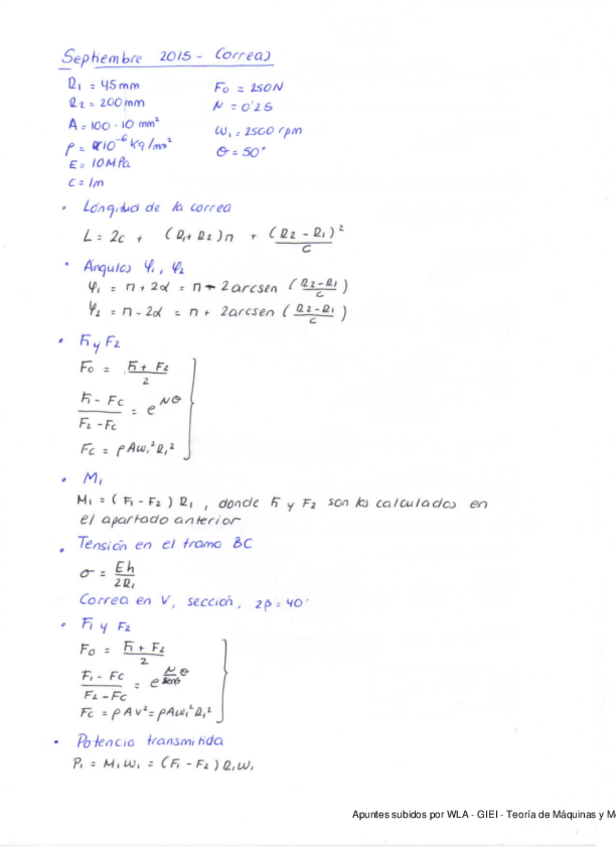 Septiembre 2015 - Correas
R1 = 45mm F0 = 250N
R2 = 200mm μ = 0'25
A = 100·10 mm² ω1 = 2500 rpm
ρ = 10⁻⁶ Kg/mm² θ = 50°
E = 10MPa
C = 1m
· Longitud de la correa
L = 2c + (R1+R2)π + (R2 - R1)²/C
· Ángulos φ1, φ2
φ1 = π + 2α = π - 2arcsen (R2-R1/C)
φ2 = π - 2α = π + 2arcsen (R2-R1/C)
· F1 y F2
F0 = F1 + F2/2
F1 - Fc/F2 - Fc = e^μθ
Fc = ρAω1²R1²
· M1
M1 = (F1 - F2) R1, donde F1 y F2 son los calculados en
el apartado anterior
· Tensión en el tramo BC
σ = Eh/2R1
Correa en V, sección, 2β = 40°
· F1 y F2
F0 = F1 + F2/2
F1 - Fc/F2 - Fc = e^μ/senβ θ
Fc = ρAv² = ρAω1²R1²
· Potencia transmitida
P1 = M1ω1 = (F1 - F2) R1ω1
Apuntes subidos por WLA - GIEI - Teoría de Máquinas y M